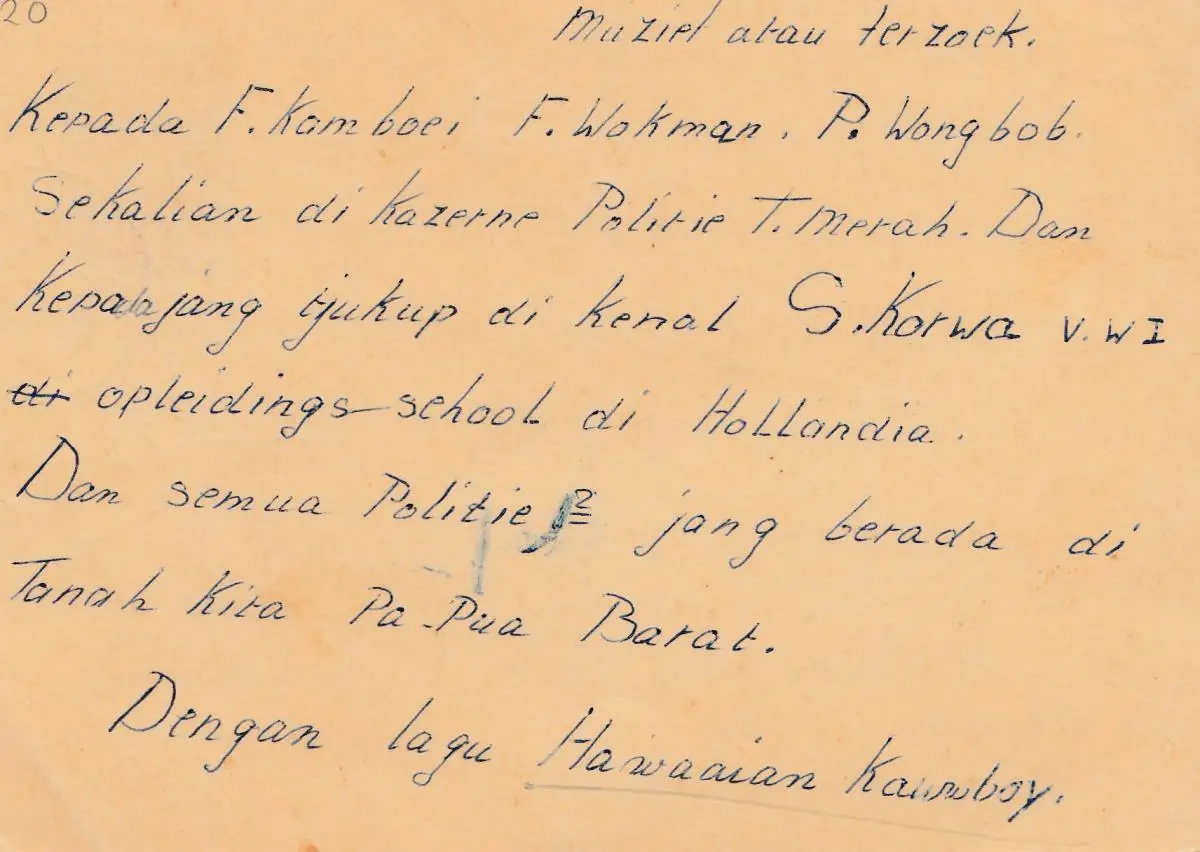 20
Muziek atau terzoek.
Kepada F. Komboei F. Wokman. P. Wongbob.
Sekalian di Kazerne Politie T. Merah. Dan
Kepada jang tjukup di kenal S. Korwa V. W I
di opleidings-school di Hollandia.
Dan semua Politie 2 jang berada di
Tanah Kita Pa-Pua Barat.
Dengan lagu Hawaaian Kauwboy.